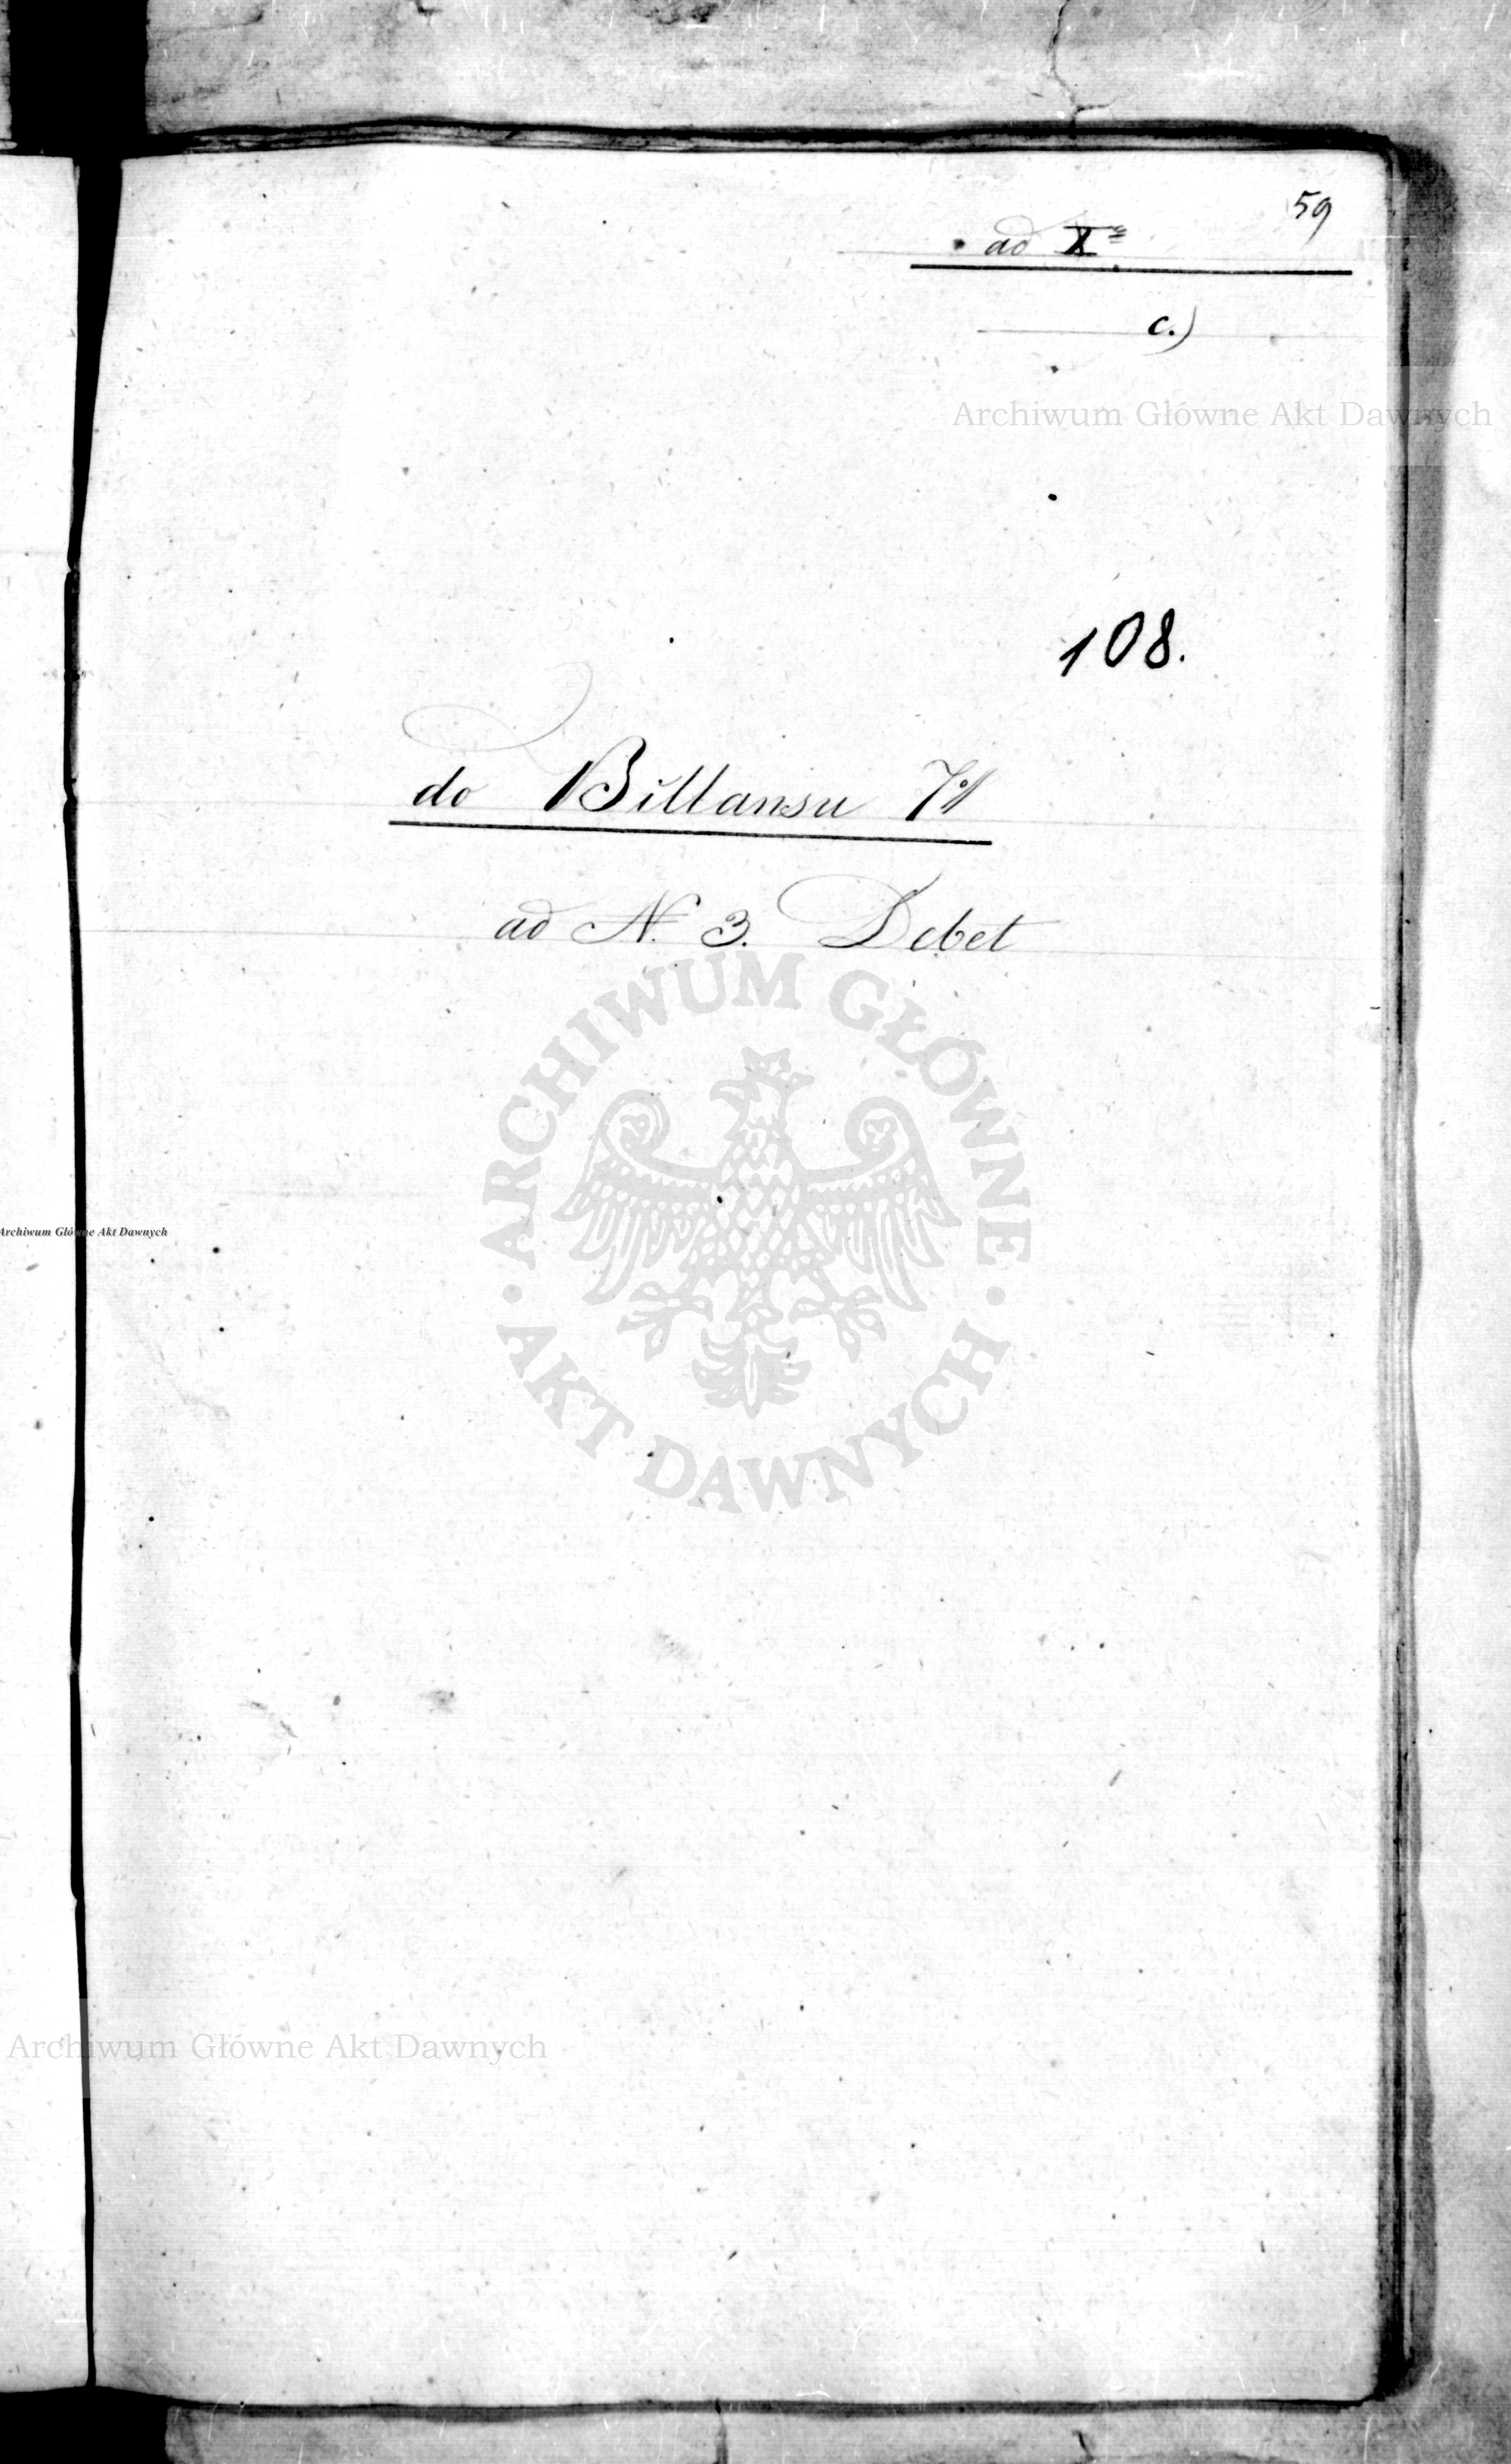 59
ad X
c.)
Archiwum Główne Akt Dawnych
108.
do Billansu
ad N. 3. Debet
ARCHIWUM GŁÓWNE
AKT DAWNYCH
Archiwum Główne Akt Dawnych
Archiwum Główne Akt Dawnych